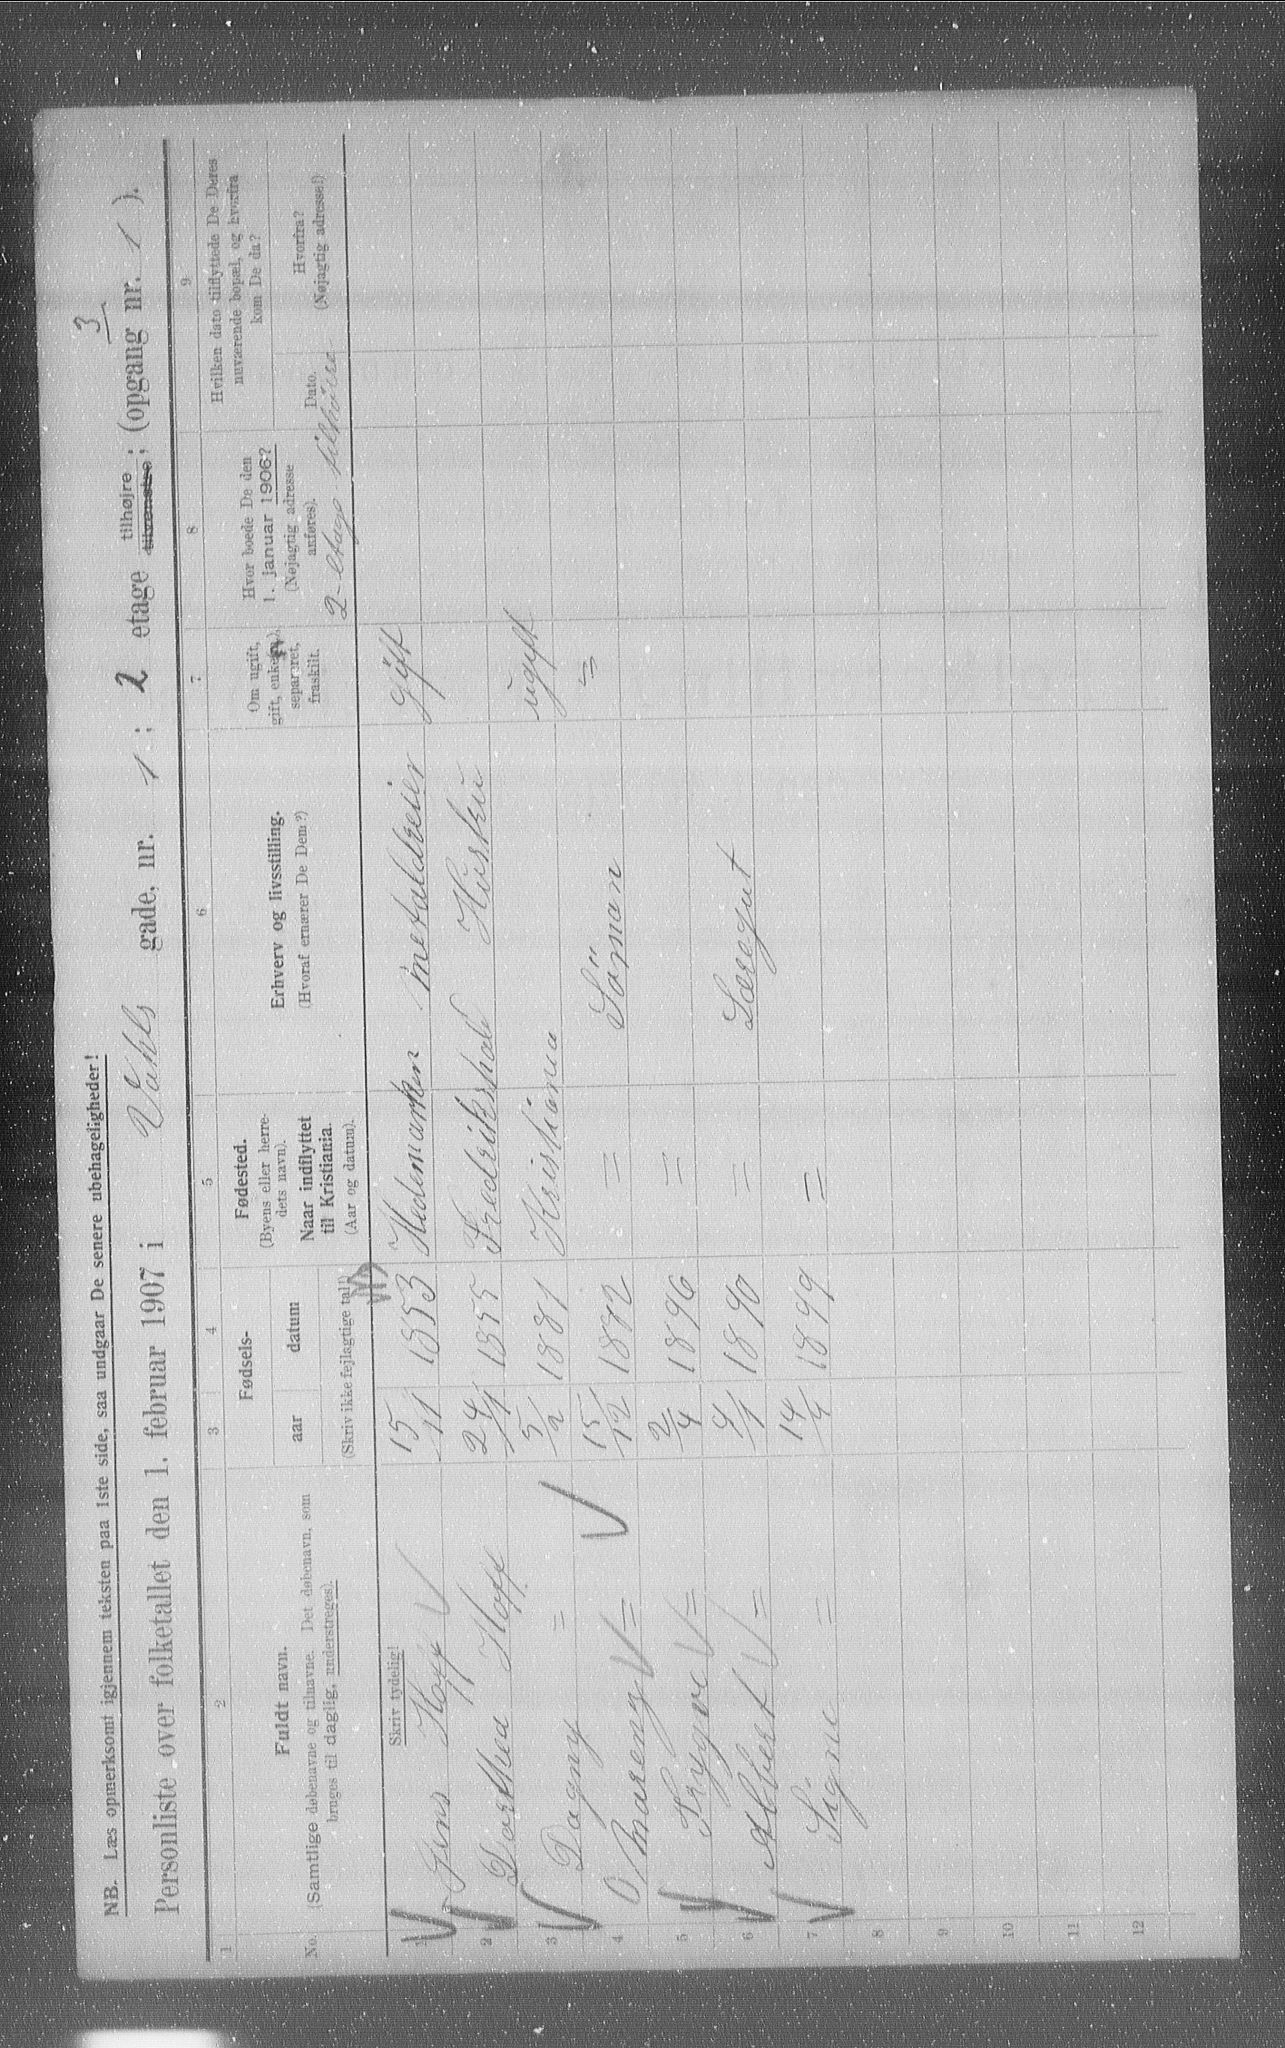 NB. Læs opmerksomt igjennem teksten paa 1ste side, saa undgaar De senere ubehageligheder!
3
Personliste over folketallet den 1. februar 1907 i Vahls gade, nr. 1 ; 2 etage tilhøjre tilvenstre ; (opgang nr. 1 ).
1 2 3 4 5 6 7 8 9
No.
Fuldt navn.
(Samtlige døbenavne og tilnavne. Det døbenavn, som
bruges til daglig, understreges).
Fødsels-
aar datum
(Skriv ikke fejlagtige tal!)
Fødested.
(Byens eller herre-
dets navn).
Naar indflyttet
til Kristiania.
(Aar og datum).
Erhverv og livsstilling.
(Hvoraf ernærer De Dem?)
Om ugift,
gift, enke(m.),
separeret,
fraskilt.
Hvor boede De den
1. januar 1906?
(Nøjagtig adresse
anføres).
Hvilken dato tilflyttede De Deres
nuværende bopæl, og hvorfra
kom De da?
Dato.
Hvorfra?
(Nøjagtig adresse!)
Skriv tydelig!
2- etage tilhöire
1 Jens Hoff 15/11 1853 Hedemarken metaldreier gift
2 Dorthea Hoff 24/1 1855 Fredrikshald Hustru
3 Dagny = 5/2 1881 Kristiania ugift
4 = 15/12 1882 = Söman =
5 Trygve = 2/4 1896 =
6 Albert = 4/1 1890 = Læregut
7 Signe = 14/4 1899 =
8
9
10
11
12